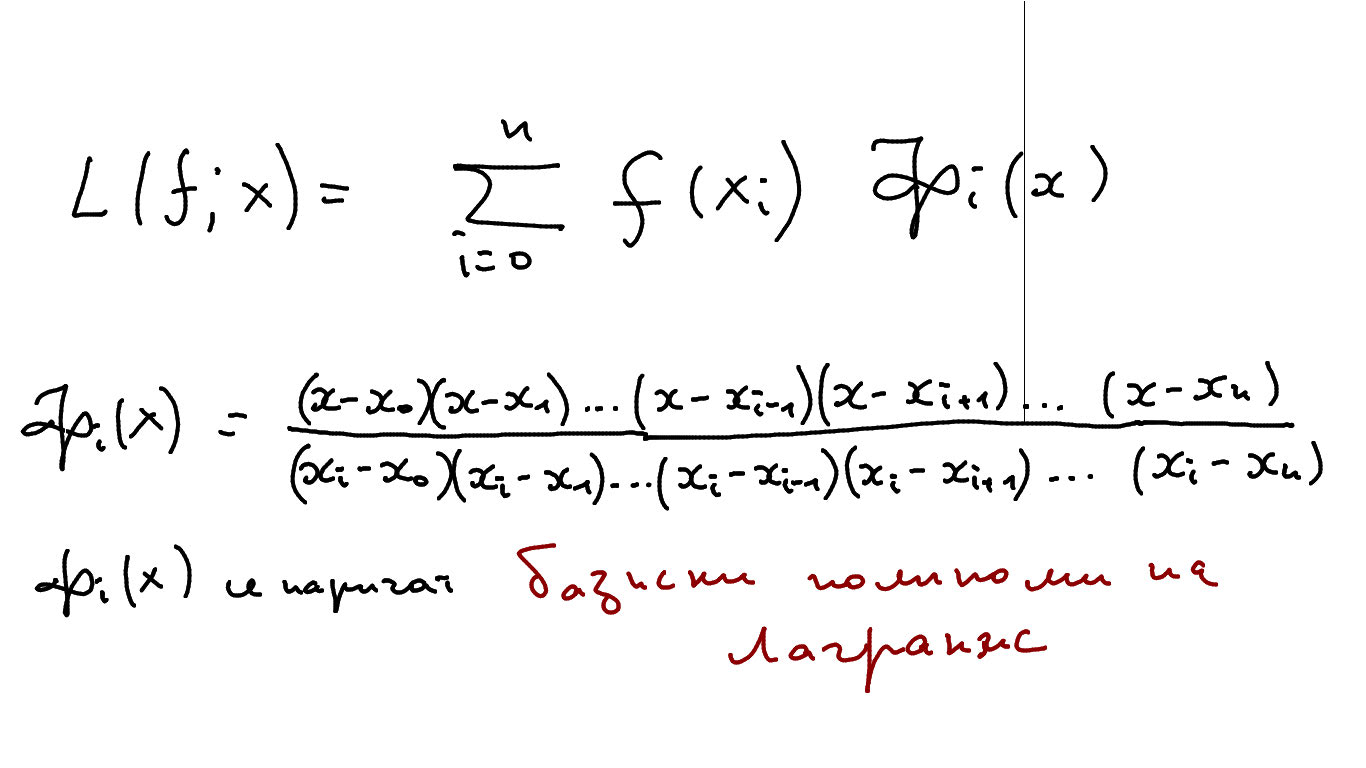 L(f; x) = \sum_{i=0}^{n} f(x_i) φ_i(x)
φ_i(x) = \frac{(x-x_0)(x-x_1)...(x-x_{i-1})(x-x_{i+1})...(x-x_n)}{(x_i-x_0)(x_i-x_1)...(x_i-x_{i-1})(x_i-x_{i+1})...(x_i-x_n)}
φ_i(x) се наричат базисни полиноми на
Лагранж